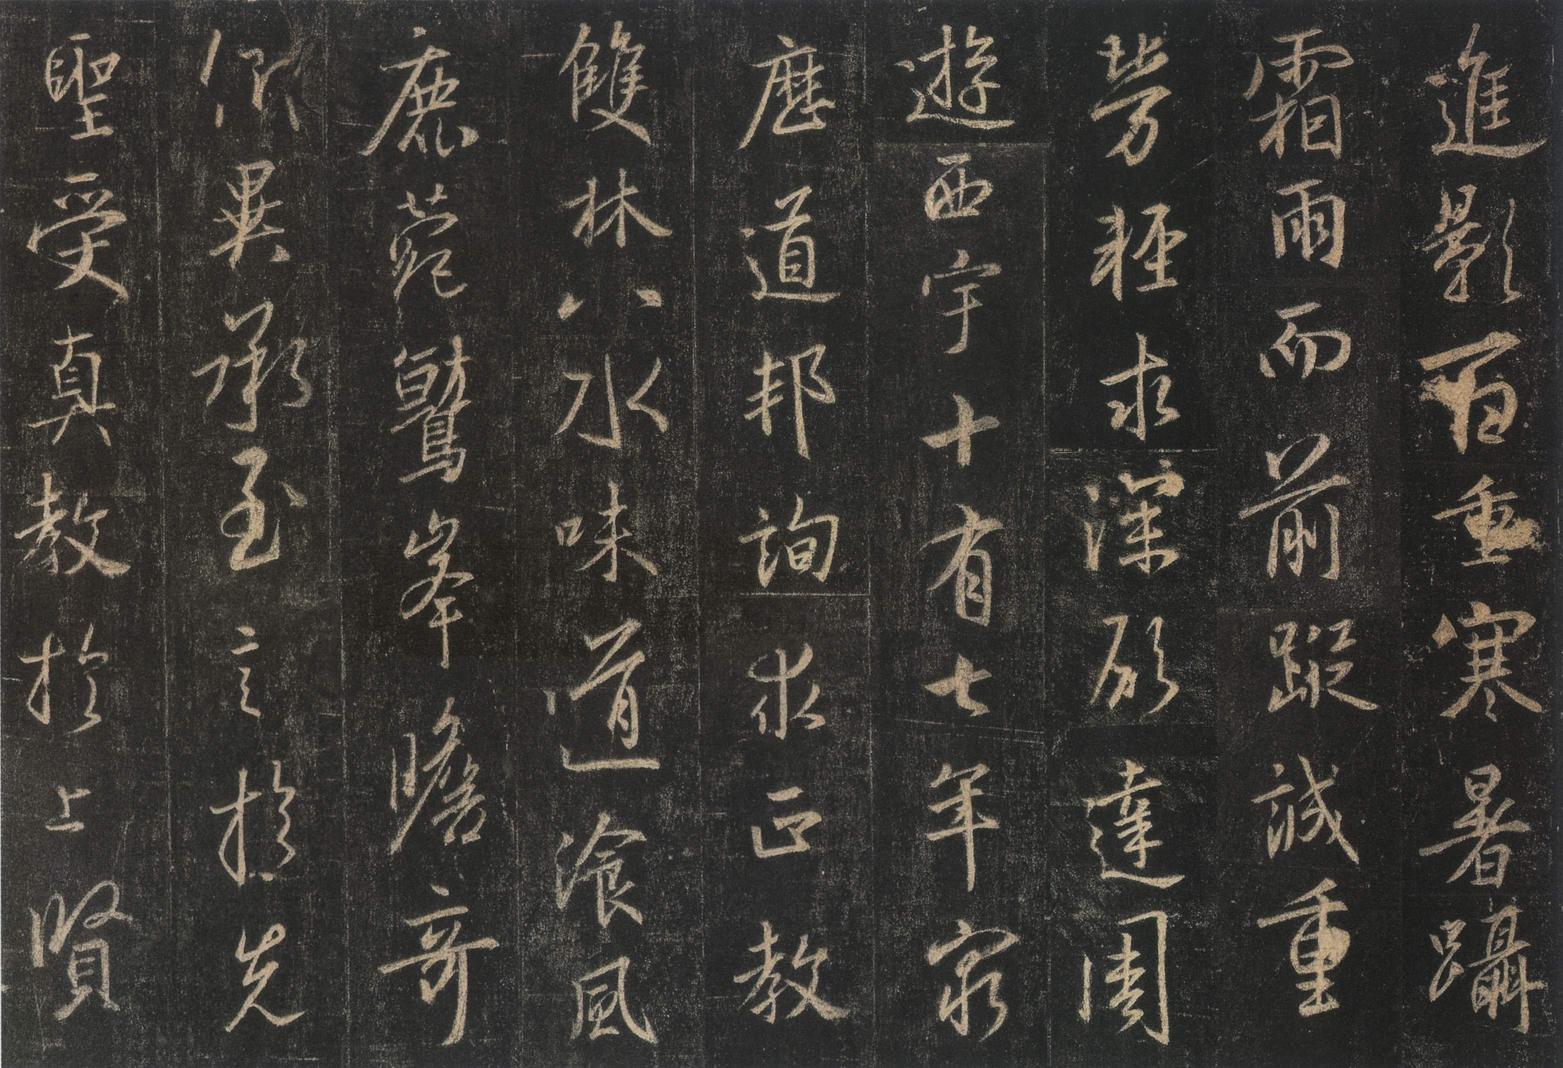 進影百重寒暑躡
霜雨而前蹤誠重
勞輕求深願達周
遊西宇十有七年窮
歷道邦詢求正教
雙林八水味道湌風
鹿菀鷲峯瞻奇
仰異承至言於先
聖受真教於上賢